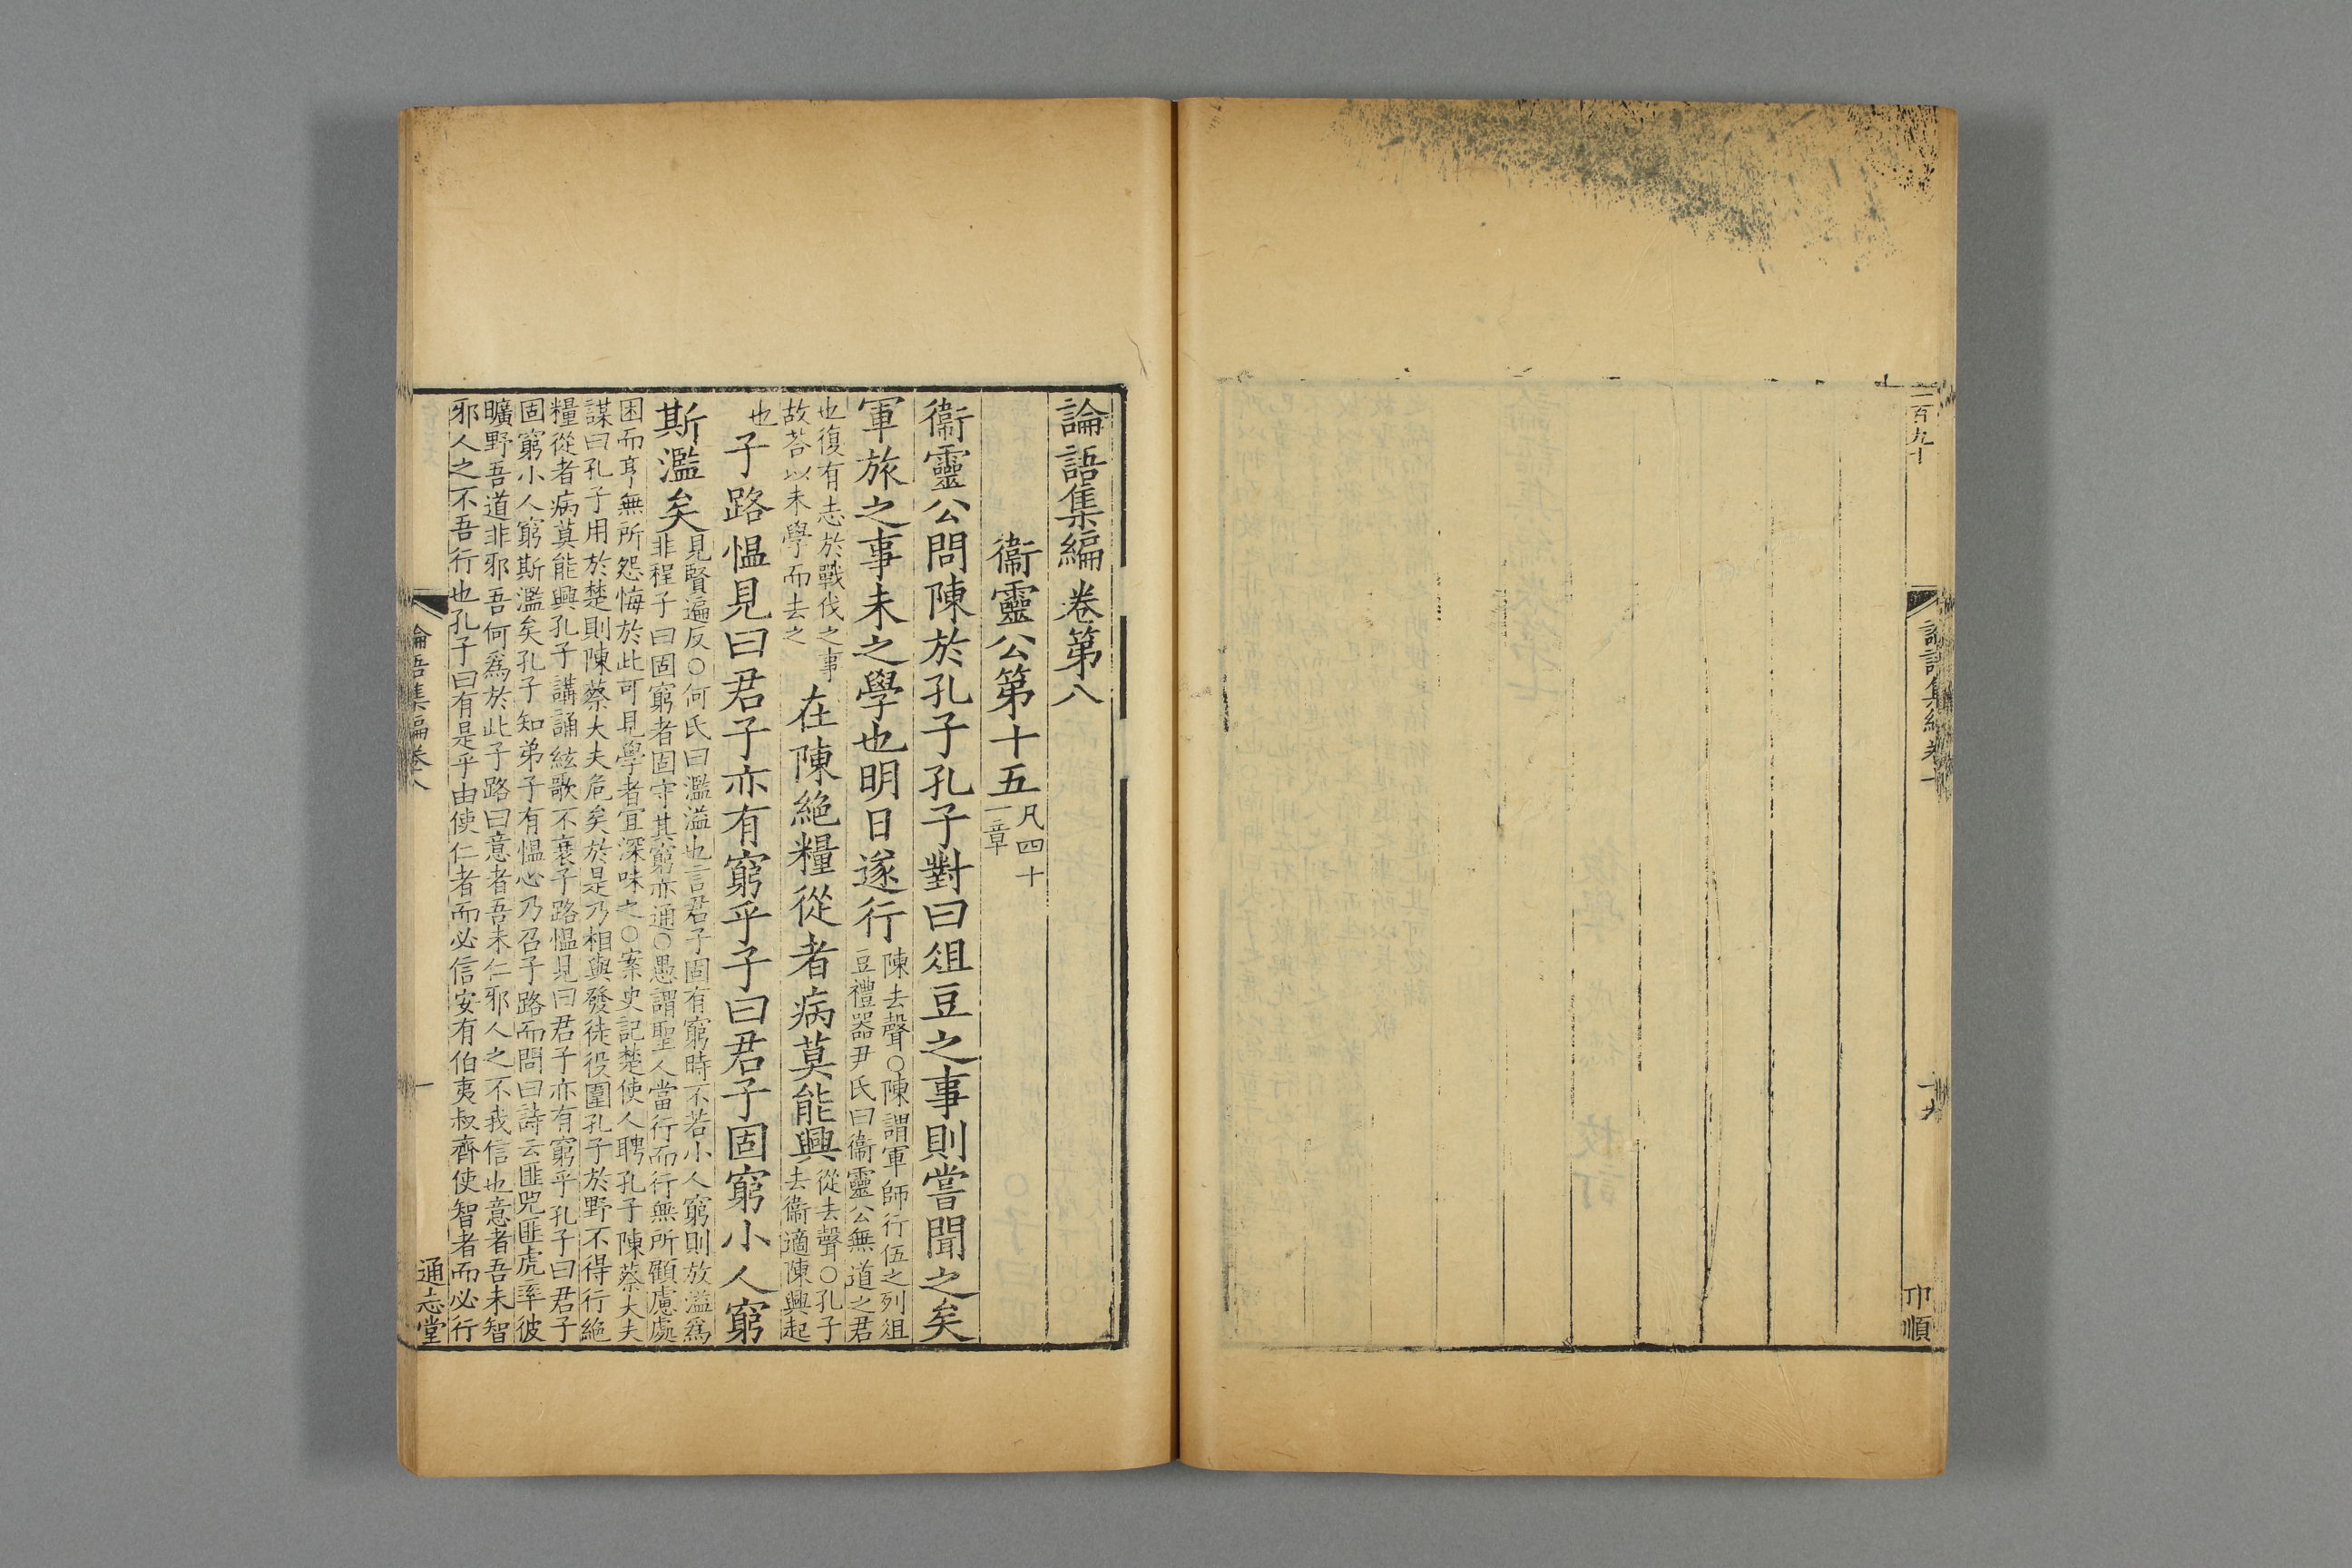 二百九十
論語集編卷十
十九
巾順
論語集編卷第八
衞靈公第十五凡四十
一章
衞靈公問陳於孔子孔子對曰俎豆之事則嘗聞之矣
軍旅之事未之學也明日遂行
陳去聲○陳謂軍師行伍之列俎
豆禮器尹氏曰衞靈公無道之君
也復有志於戰伐之事
故荅以未學而去之
在陳絶糧從者病莫能興
從去聲○孔子
去衞適陳興起
也
子路愠見曰君子亦有窮乎子曰君子固窮小人窮
斯濫矣
見賢遍反○何氏曰濫溢也言君子固有窮時不若小人窮則放溢爲
非程子曰固窮者固守其窮亦通○愚謂聖人當行而行無所顧慮處
困而亨無所怨悔於此可見學者宜深味之○案史記楚使人聘孔子陳蔡大夫
謀曰孔子用於楚則陳蔡大夫危矣於是乃相與發徒役圍孔子於野不得行絶
糧從者病莫能興孔子講誦絃歌不衰子路愠見曰君子亦有窮乎孔子曰君子
固窮小人窮斯濫矣孔子知弟子有愠心乃召子路而問曰詩云匪兕匪虎率彼
曠野吾道非邪吾何爲於此子路曰意者吾未仁邪人之不我信也意者吾未智
邪人之不吾行也孔子曰有是乎由使仁者而必信安有伯夷叔齊使智者而必行
論語集編卷八
一
通志堂